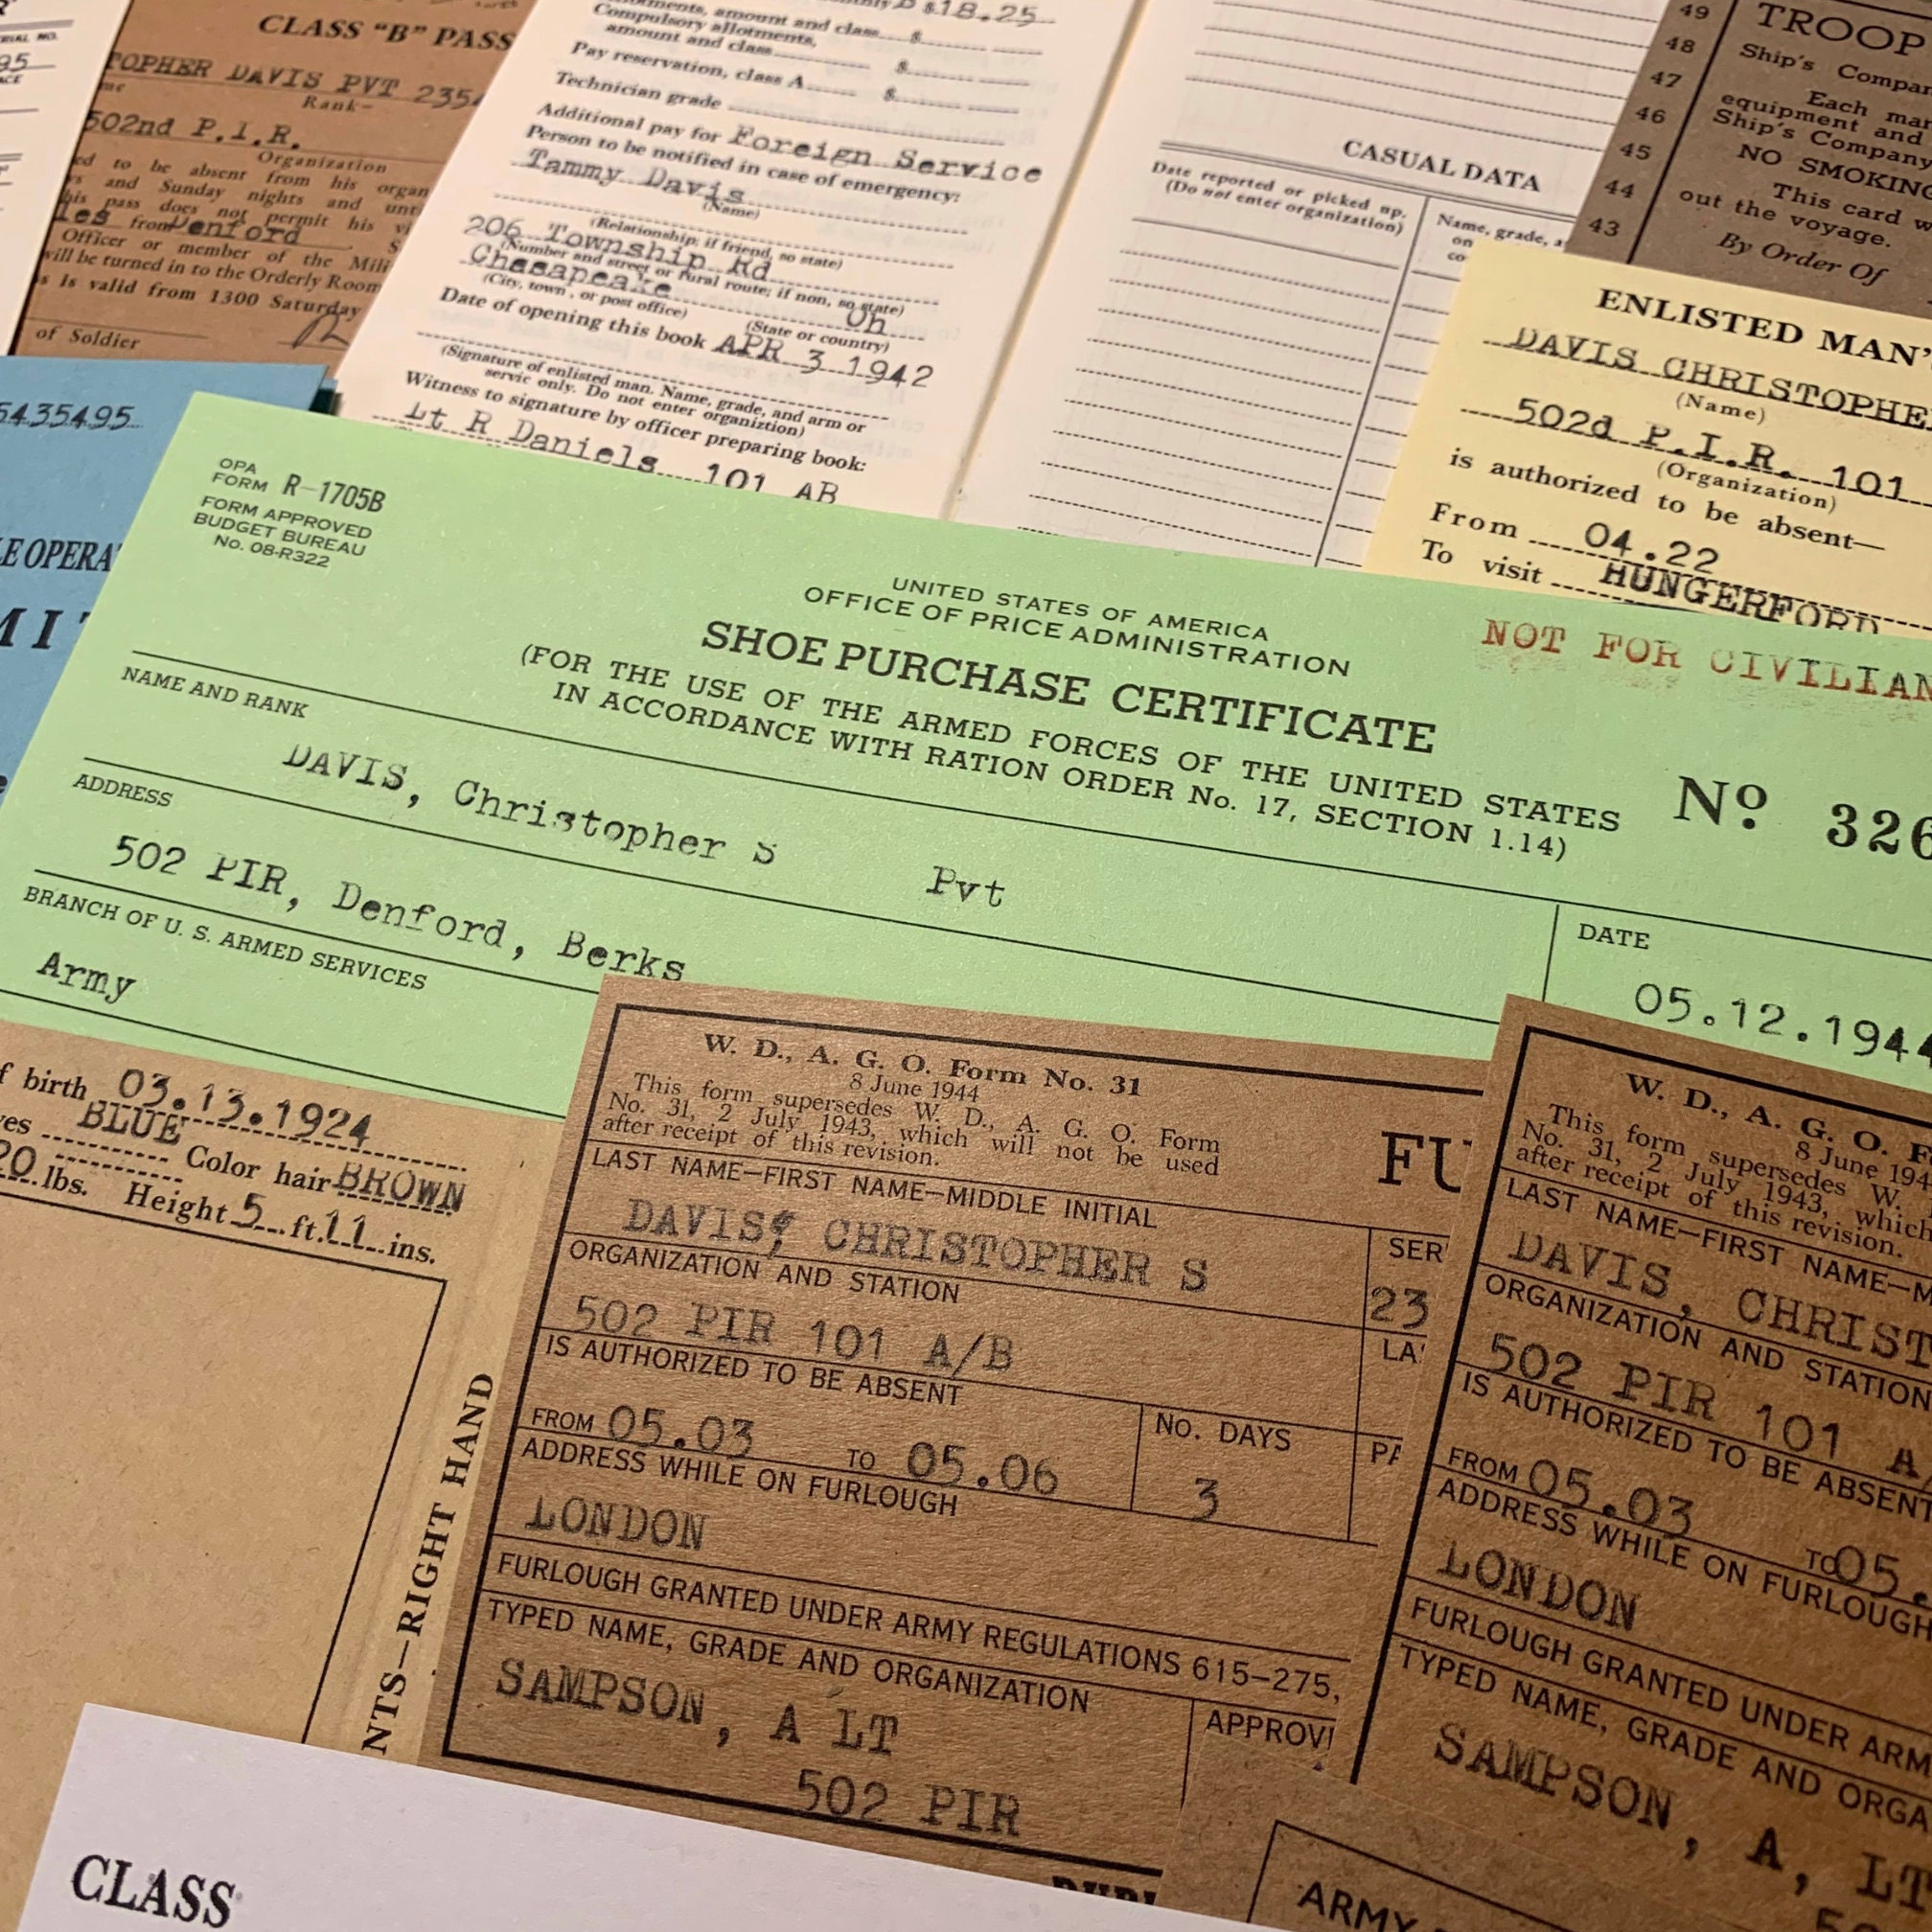 RIAL NO.
95
CLASS "B" PASS
TOPHER DAVIS PVT 2354
Rank-
502nd P.I.R.
Organization
ed to be absent from his organ
and Sunday nights and unti
his pass does not permit his vi
les from Denford
Officer or member of the Mili
will be turned in to the Orderly Room
s is valid from 1300 Saturday
of Soldier
$18.25
amount and class $
Compulsory allotments,
amount and class $
Pay reservation, class A $
Technician grade
Additional pay for Foreign Service
Person to be notified in case of emergency:
Tammy Davis
(Name)
(Relationship; if friend, so state)
206 Township Rd
(Number and street or rural route; if non, so state)
Chesapeake
Oh
(City, town, or post office) (State or country)
Date of opening this book APR 3 1942
(Signature of enlisted man. Name, grade, and arm or
servic only. Do not enter organiztion)
Witness to signature by officer preparing book:
Lt R Daniels 101 AB
CASUAL DATA
Date reported or picked up.
(Do not enter organization)
Name, grade, a
on
co
49
48
47
46
45
44
43
TROOP
Ship's Compan
Each man
equipment and
Ship's Company
NO SMOKING
This card w
out the voyage.
By Order Of
ENLISTED MAN'
DAVIS CHRISTOPHE
(Name)
502d P.I.R. 101
(Organization)
is authorized to be absent—
From 04.22
To visit HUNGERFORD
5435495
LE OPERA
MIT
OPA
FORM R-1705B
FORM APPROVED
BUDGET BUREAU
No. 08-R322
UNITED STATES OF AMERICA
OFFICE OF PRICE ADMINISTRATION
SHOE PURCHASE CERTIFICATE
(FOR THE USE OF THE ARMED FORCES OF THE UNITED STATES
IN ACCORDANCE WITH RATION ORDER No. 17, SECTION 1.14)
NOT FOR CIVILIAN
Nº 326
NAME AND RANK
DAVIS, Christopher S Pvt
ADDRESS
502 PIR, Denford, Berks
DATE
05.12.1944
BRANCH OF U. S. ARMED SERVICES
Army
f birth 03.13.1924
yes BLUE Color hair BROWN
20 lbs. Height 5 ft. 11 ins.
NTS—RIGHT HAND
W. D., A. G. O. Form No. 31
8 June 1944
This form supersedes W. D., A. G. O. Form
No. 31, 2 July 1943, which will not be used
after receipt of this revision.
FU
LAST NAME—FIRST NAME—MIDDLE INITIAL
DAVIS, CHRISTOPHER S
SER
23
ORGANIZATION AND STATION
502 PIR 101 A/B
LA
IS AUTHORIZED TO BE ABSENT
FROM 05.03 TO 05.06
No. DAYS
3
PA
ADDRESS WHILE ON FURLOUGH
LONDON
FURLOUGH GRANTED UNDER ARMY REGULATIONS 615-275,
TYPED NAME, GRADE AND ORGANIZATION
SAMPSON, A LT
502 PIR
APPROV
W. D., A. G. O. F
8 June 194
This form supersedes W.
No. 31, 2 July 1943, which
after receipt of this revision.
LAST NAME—FIRST NAME—M
DAVIS, CHRIST
ORGANIZATION AND STATION
502 PIR 101 A
IS AUTHORIZED TO BE ABSENT
FROM 05.03 TO 05.
ADDRESS WHILE ON FURLOUGH
LONDON
FURLOUGH GRANTED UNDER ARM
TYPED NAME, GRADE AND ORGA
SAMPSON, A, LT
ARMY
CLASS